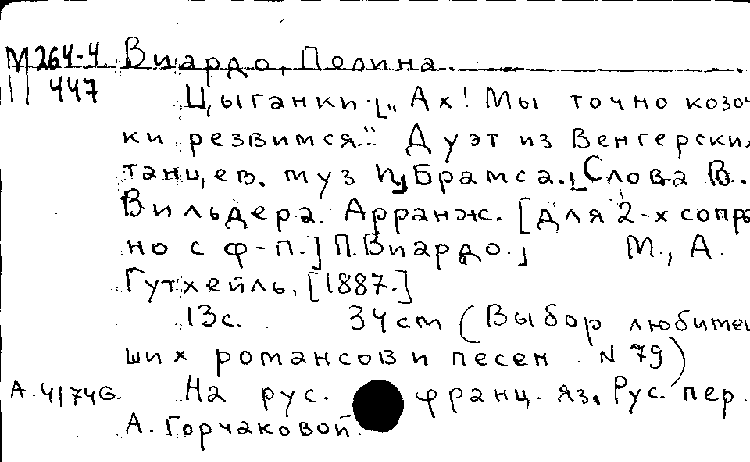 М 264-4 Виардо, Полина.
447
Цыганки. [„Ах! Мы точно козоч
ки резвимся." Дуэт из Венгерских
танцев. муз И. Брамса. Слова В.
Вильдера. Арранж. [для 2-х сопра
но с ф-п.] П. Виардо.] М., А.
Гутхейль, [1887.]
13с. 34 cm (Выбор любитей
ших романсов и песен N 79)
А. 4174G. На рус. франц. яз. Рус. пер.
А. Горчаковой.